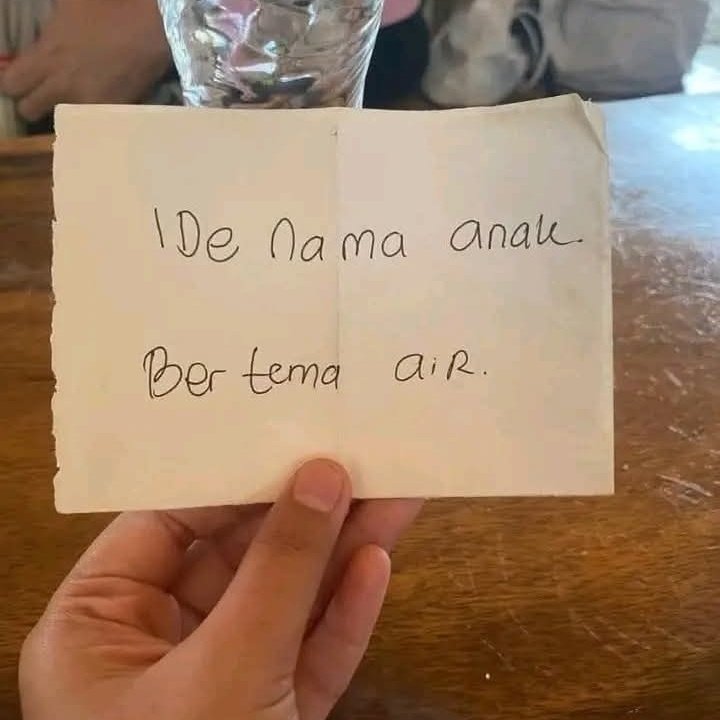 IDe nama anak.
Ber tema aiR.